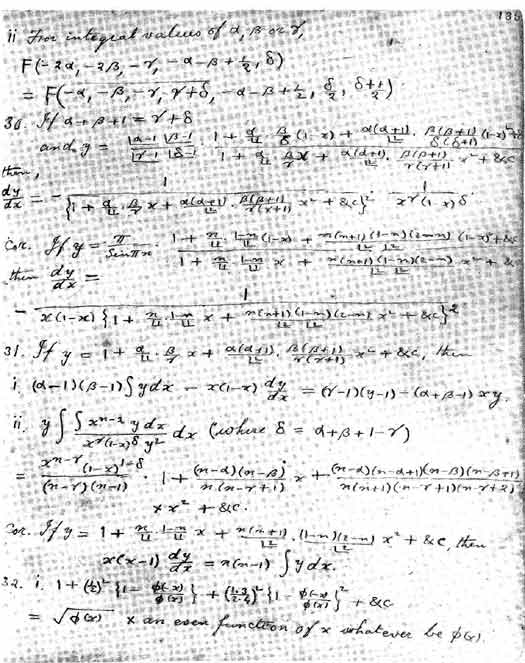 135
ii For integral values of α, β or γ,
F(-2α, -2β, -γ, -α-β+½, δ)
= F(-α, -β, -γ, γ+δ, -α-β+½, δ/2, (δ+1)/2)
30. If α+β+1 = γ+δ
and y = (|α-1 |β-1)/(|γ-1 |δ-1) · (1 + α/|1 · β/δ (1-x) + α(α+1)/|2 · β(β+1)/δ(δ+1) (1-x)² + &c)/(1 + α/|1 · β/γ x + α(α+1)/|2 · β(β+1)/γ(γ+1) x² + &c)
then,
dy/dx = - 1/{1 + α/|1 · β/γ x + α(α+1)/|2 · β(β+1)/γ(γ+1) x² + &c}² · 1/(x^γ (1-x)^δ)
Cor. If y = π/(Sin πn) · (1 + n/|1 · (1-n)/|1 (1-x) + n(n+1)/|2 · (1-n)(2-n)/|2 (1-x)² + &c)/(1 + n/|1 · (1-n)/|1 x + n(n+1)/|2 · (1-n)(2-n)/|2 x² + &c)
then dy/dx =
- 1/(x(1-x){1 + n/|1 · (1-n)/|1 x + n(n+1)/|2 · (1-n)(2-n)/|2 x² + &c}²)
31. If y = 1 + α/|1 · β/γ x + α(α+1)/|2 · β(β+1)/γ(γ+1) x² + &c, then
i. (α-1)(β-1)∫y dx - x(1-x) dy/dx = (γ-1)(y-1) - (α+β-1) xy.
ii. y∫ (∫x^(n-2) y dx)/(x^γ (1-x)^δ y²) dx (where δ = α+β+1-γ)
= x^(n-γ) (1-x)^(1-δ)/((n-γ)(n-1)) · 1 + (n-α)(n-β)/(n(n-γ+1)) x + (n-α)(n-α+1)(n-β)(n-β+1)/(n(n+1)(n-γ+1)(n-γ+2))
× x² + &c.
Cor. If y = 1 + n/|1 · (1-n)/|1 x + n(n+1)/|2 · (1-n)(2-n)/|2 x² + &c, then
x(x-1) dy/dx = n(n-1) ∫y dx.
32. i. 1 + (½)² {1 - φ(-x)/φ(x)} + (1·3/2·4)² {1 - φ(-x)/φ(x)}² + &c
= √φ(x) × an even function of x whatever be φ(x).